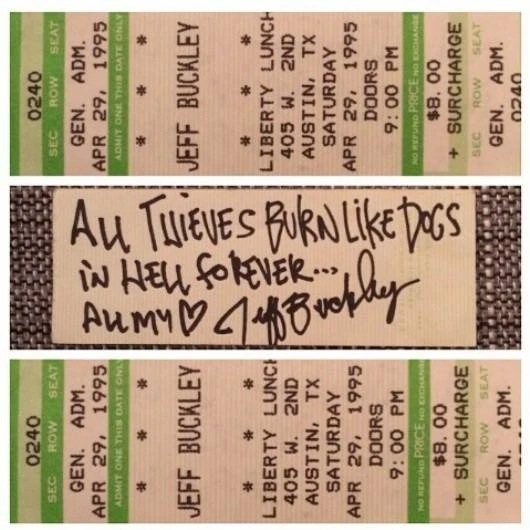 SEC ROW SEAT
0240
GEN. ADM.
APR 29, 1995
ADMIT ONE THIS DATE ONLY
* * *
JEFF BUCKLEY
* * *
LIBERTY LUNCH
405 W. 2ND
AUSTIN, TX
SATURDAY
APR 29, 1995
DOORS
9:00 PM
NO REFUND PRICE NO EXCHANGE
$8.00
+ SURCHARGE
SEC ROW SEAT
GEN. ADM.
0240
All THIEVES BURN LIKE DOGS
iN HELL FOREVER...
All MY ♡ Jeff Buckley
SEC ROW SEAT
0240
GEN. ADM.
APR 29, 1995
ADMIT ONE THIS DATE ONLY
* * *
JEFF BUCKLEY
* * *
LIBERTY LUNCH
405 W. 2ND
AUSTIN, TX
SATURDAY
APR 29, 1995
DOORS
9:00 PM
NO REFUND PRICE NO EXCHANGE
$8.00
+ SURCHARGE
SEC ROW SEAT
GEN. ADM.
0240